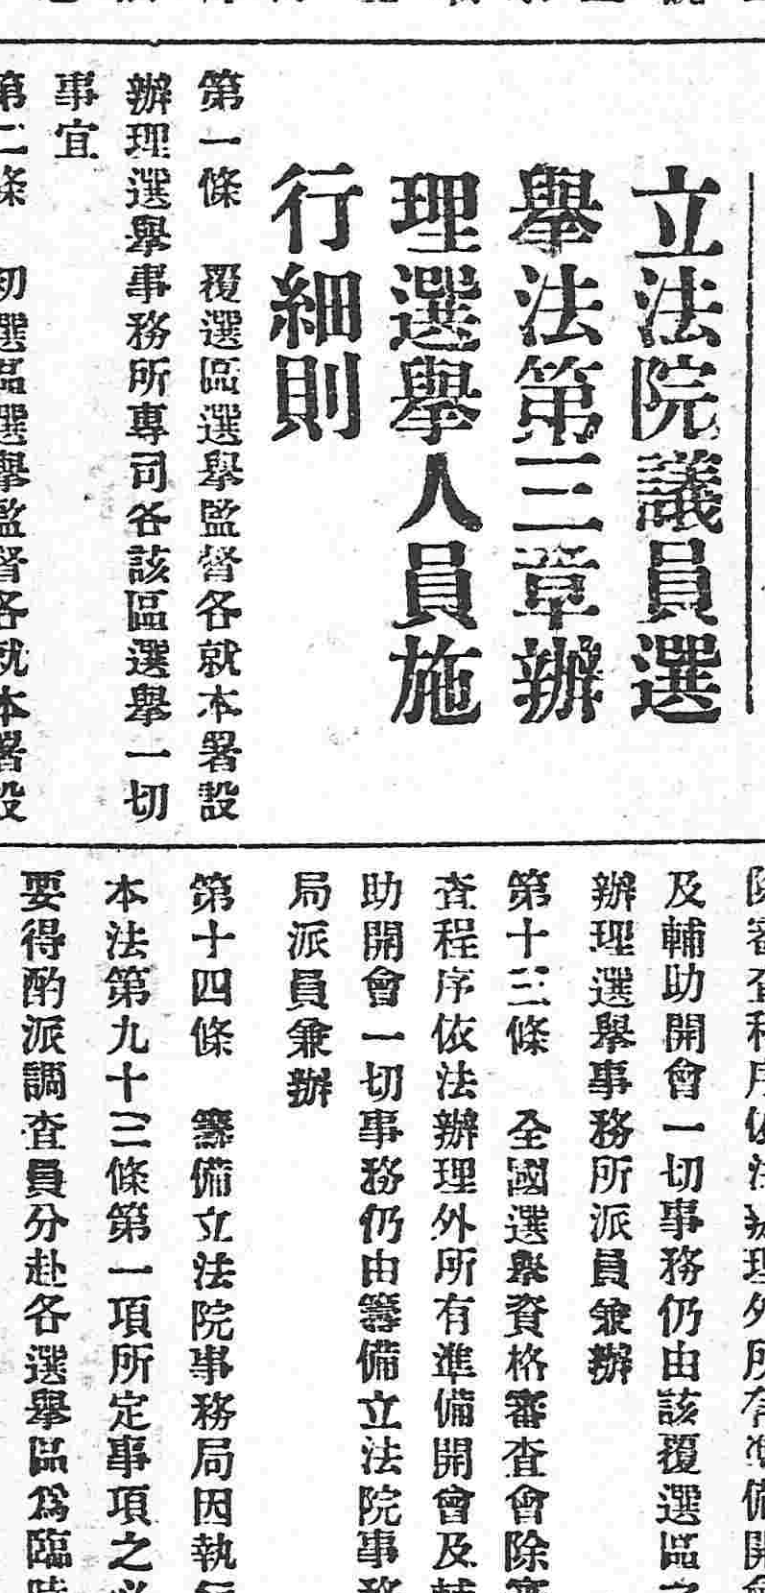 立法院議員選
舉法第三章辦
理選舉人員施
行細則
第一條　覆選區選舉監督各就本署設
辦理選舉事務所專司各該區選舉一切
事宜
第二條　初選區選舉監督各就本署設
院審查程序依法辦理外所有準備開會
及輔助開會一切事務仍由該覆選區
辦理選舉事務所派員兼辦
第十三條　全國選舉資格審查會除審
查程序依法辦理外所有準備開會及輔
助開會一切事務仍由籌備立法院事務
局派員兼辦
第十四條　籌備立法院事務局因執行
本法第九十三條第一項所定事項之必
要得酌派調查員分赴各選舉區爲臨時